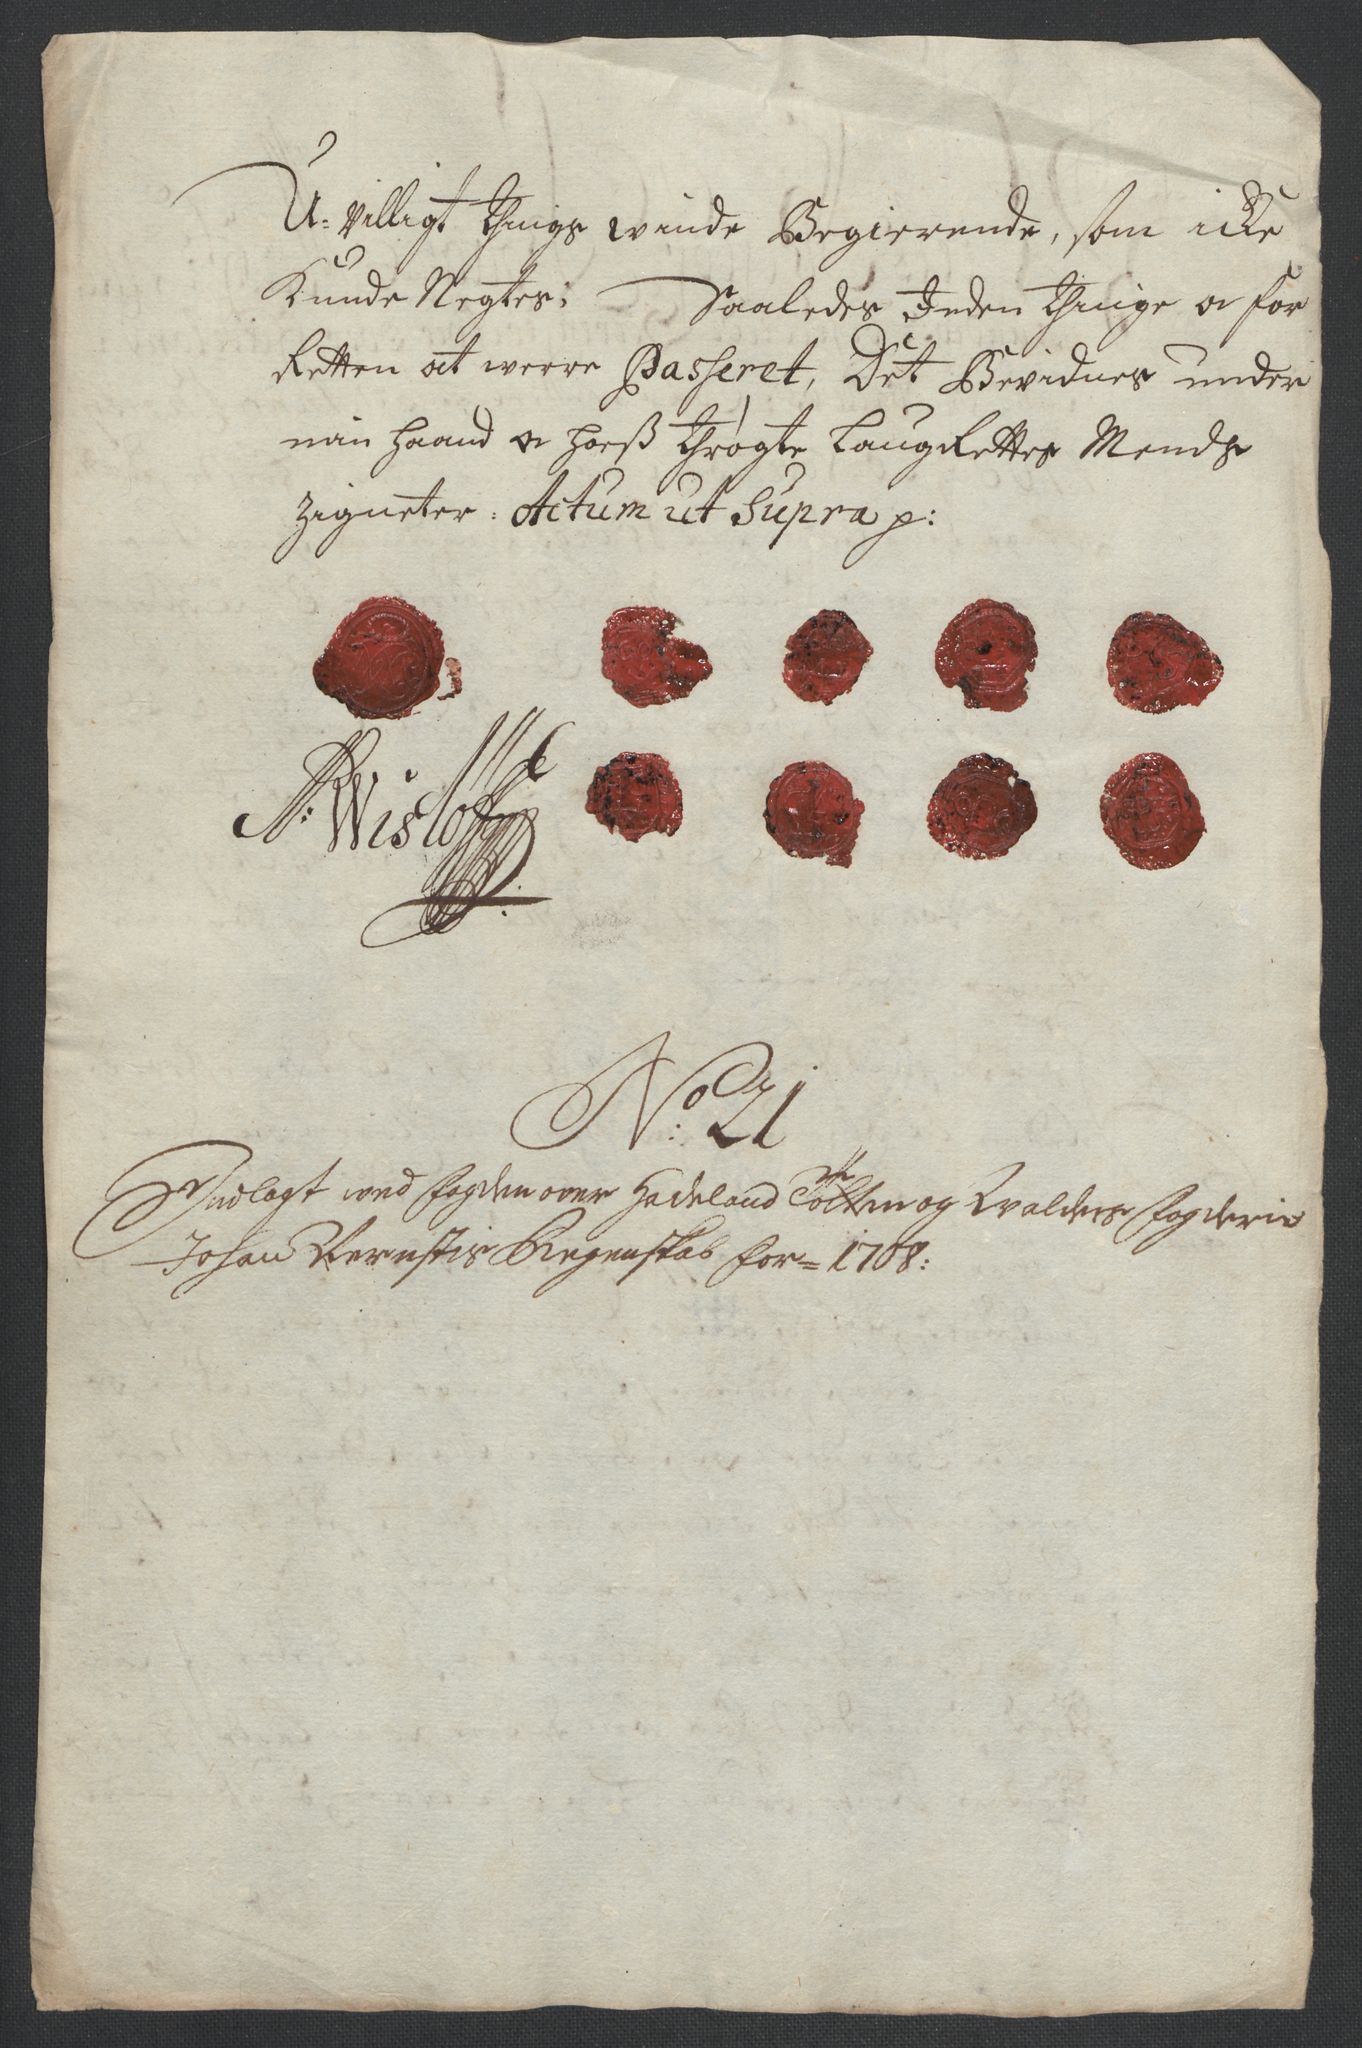 U-villigt tings winde Begierende, som icke
Kunde Negtes; Saaledes Inden tinge o for
Retten at werre Passeret, Det Bevidnes under
min haand o hoeß trøgte LaugRettes Mends
zigneter. Actum ut Supra p:
Wisløff
No: 21
Indlagt wed fogden over Hadeland Totten og Walders fogderie
Johan Vernstis Regenskab for= 1708: